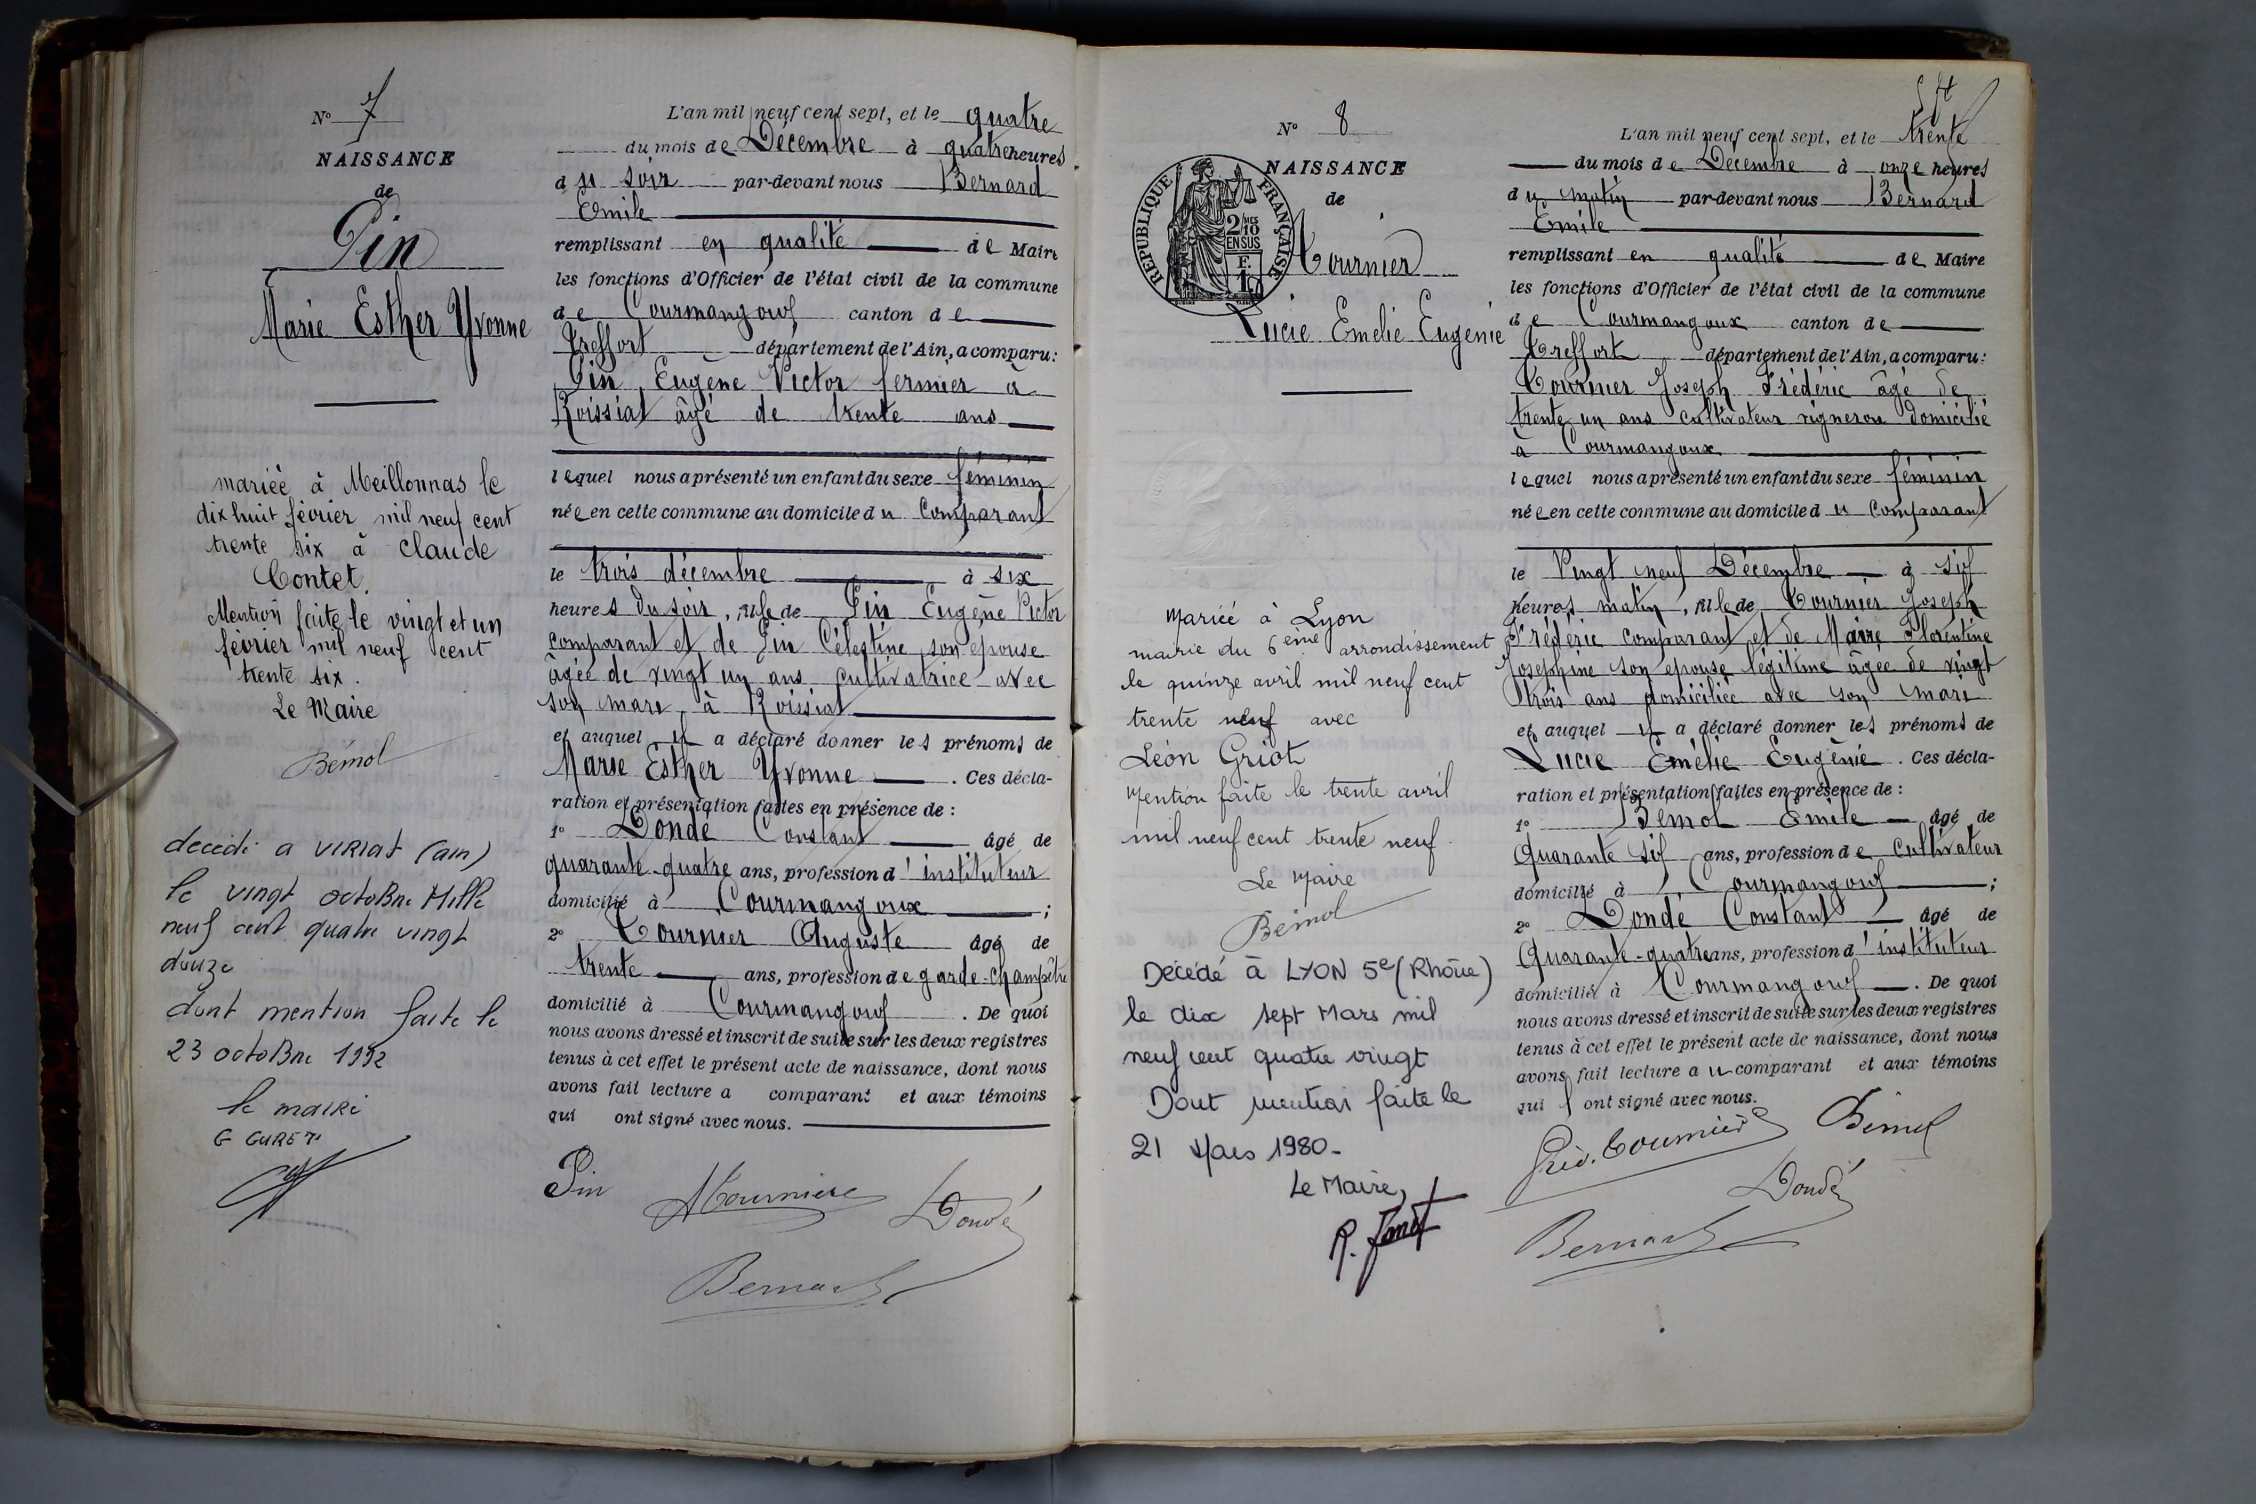 N° 7
NAISSANCE
de
Pin
Marie Esther Yvonne
mariée à Meillonnas le
dix huit février mil neuf cent
trente six à Claude
Contet.
Mention faite le vingt et un
février mil neuf cent
trente six.
Le Maire
Bémol
decedé a VIRIAT (ain)
le vingt octoBre Mille
neuf cent quatre vingt
douze
dont mention faite le
23 octoBre 1992
le maiRe
G GURET
L'an mil neuf cent sept, et le quatre
du mois de Décembre à quatre heures
du soir par-devant nous Bernard
Emile
remplissant en qualité de Maire
les fonctions d'Officier de l'état civil de la commune
de Courmangoux canton de
Treffort département de l'Ain, a comparu:
Pin Eugène Victor fermier à
Roissiat âgé de trente ans
lequel nous a présenté un enfant du sexe féminin
née en cette commune au domicile du Comparant
le trois décembre à six
heures du soir, fille de Pin Eugène Victor
comparant et de Pin Célestine son épouse
âgée de vingt un ans cultivatrice avec
son mari à Roissiat
et auquel il a déclaré donner les prénoms de
Marie Esther Yvonne. Ces décla-
ration et présentation faites en présence de :
1° Dondé Constant âgé de
quarante-quatre ans, profession d'instituteur
domicilié à Courmangoux ;
2° Tournier Auguste âgé de
trente ans, profession de garde-champêtre
domicilié à Courmangoux. De quoi
nous avons dressé et inscrit de suite sur les deux registres
tenus à cet effet le présent acte de naissance, dont nous
avons fait lecture a comparant et aux témoins
qui ont signé avec nous.
Pin A Tournier Dondé
Bernard
N° 8
NAISSANCE
de
REPUBLIQUE FRANÇAISE
2/10 MES
EN SUS
F.
1
Tournier
Lucie Emelie Eugenie
Mariée à Lyon
mairie du 6ème arrondissement
le quinze avril mil neuf cent
trente neuf avec
Léon Griot
Mention faite le trente avril
mil neuf cent trente neuf.
Le Maire
Bémol
Décédé à LYON 5e (Rhône)
le dix sept Mars mil
neuf cent quatre vingt
Dont mention faite le
21 Mars 1980-
Le Maire,
L'an mil neuf cent sept, et le trente
du mois de Décembre à onze heures
du matin par-devant nous Bernard
Emile
remplissant en qualité de Maire
les fonctions d'Officier de l'état civil de la commune
de Courmangoux canton de
Treffort département de l'Ain, a comparu:
Tournier Joseph Frédéric âgé de
trente un ans cultivateur vigneron domicilié
à Courmangoux
lequel nous a présenté un enfant du sexe féminin
née en cette commune au domicile du Comparant
le Vingt neuf Décembre à six
heures matin, fille de Tournier Joseph
Frédéric comparant et de Maire Florentine
Josephine son épouse légitime âgée de vingt
trois ans domiciliée avec son mari
et auquel il a déclaré donner les prénoms de
Lucie Emélie Eugènie. Ces décla-
ration et présentation faites en présence de :
1° Bémol Emile âgé de
Quarante six ans, profession de Cultivateur
domicilié à Courmangoux ;
2° Dondé Constant âgé de
Quarante-quatre ans, profession d'instituteur
domicilié à Courmangoux. De quoi
nous avons dressé et inscrit de suite sur les deux registres
tenus à cet effet le présent acte de naissance, dont nous
avons fait lecture au comparant et aux témoins
qui ont signé avec nous.
Fréd. Tournier Bémol
Dondé
Bernard